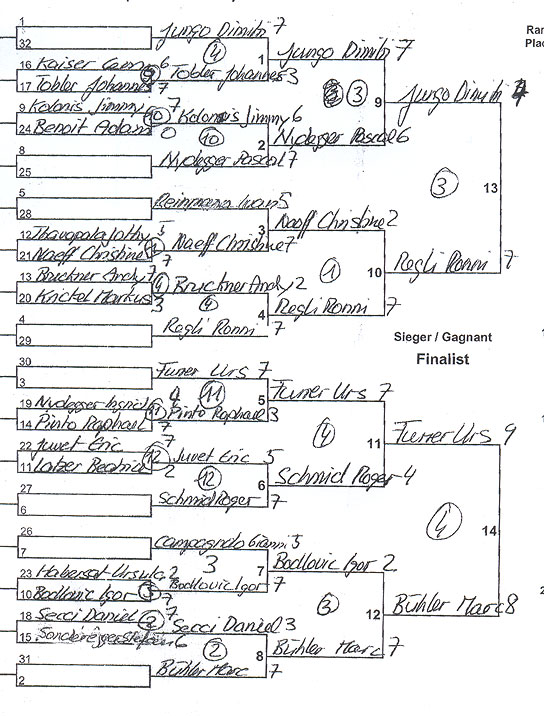 1
Jungo Dimitri 7
32
4
1
Jungo Dimitri 7
16 Kaiser 6
17 Tobler Johannes 7
Tobler Johannes 3
3
9
Jungo Dimitri
9 Kolonis Jimmy 7
24 Benoit Adam 0
10
Kolonis Jimmy 6
10
2
Nydegger Pascal 6
8
Nydegger Pascal 7
25
3
13
5
Reinmann Ivan 5
28
3
Naeff Christine 2
12
21 Naeff Christine 7
Naeff Christine 7
1
10
Regli Ronni 7
13 Bruckner Andy 7
20 Krickel Markus 3
4
Bruckner Andy 2
4
4
Regli Ronni 7
4
Regli Ronni 7
29
Sieger / Gagnant
Finalist
30
Furrer Urs 7
3
11
5
Furrer Urs 7
19 Nydegger Ingrid 4
14 Pinto Raphael 7
11
Pinto Raphael 3
4
11
Furrer Urs 9
22 Juvet Eric 7
11 Beatrice 2
12
Juvet Eric 5
12
6
Schmid Roger 4
27
Schmid Roger 7
6
4
14
26
Campagnolo Gianni 5
7
3
7
Bodlovic Igor 2
23 Habersat Ursula 2
10 Bodlovic Igor 7
3
Bodlovic Igor 7
3
12
Bühler Marc 8
18 Secci Daniel 7
15 Sonderegger Stefan 6
2
Secci Daniel 3
2
8
Bühler Marc 7
31
Bühler Marc 7
2